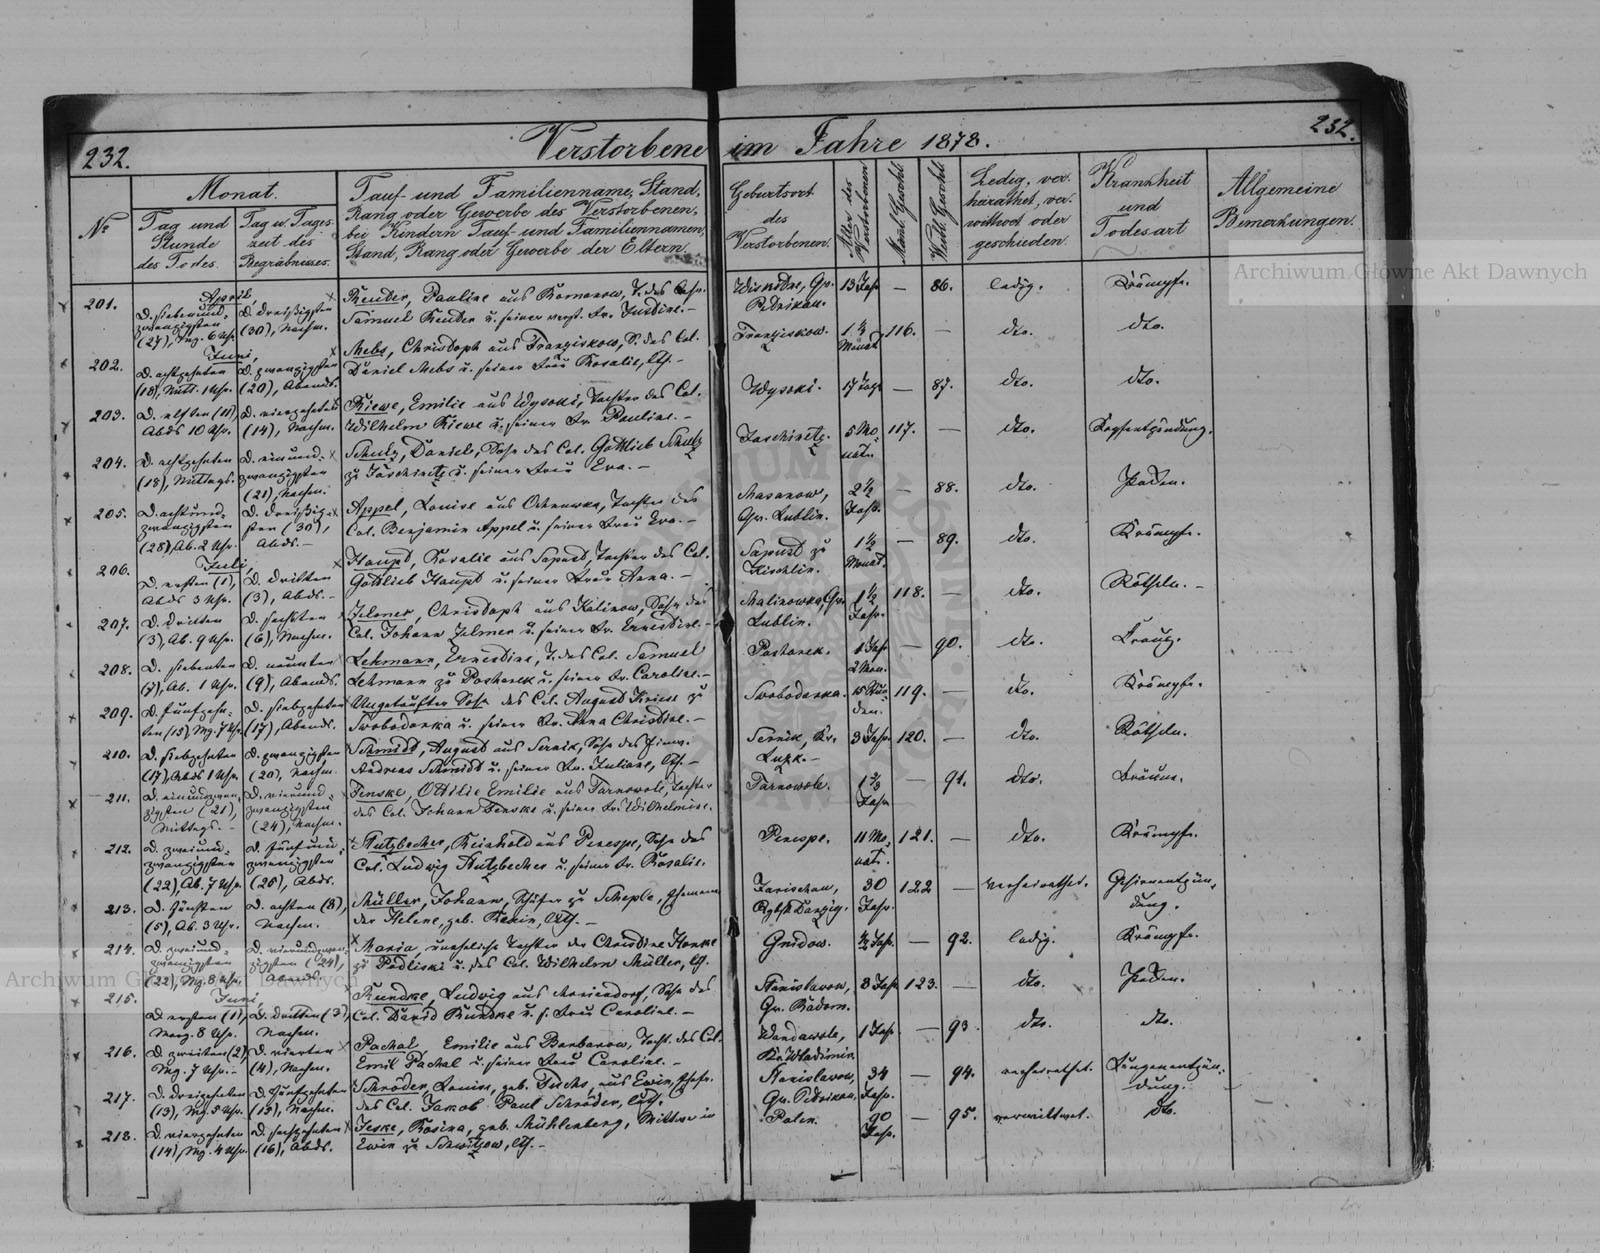 232.
Verstorbene im Jahre 1878.
232.
№
Monat.
Tag und Stunde des Todes.
Tag u. Tageszeit des Begräbnisses.
Tauf- und Familienname, Stand,
Rang oder Gewerbe des Verstorbenen,
bei Kindern Tauf- und Familiennamen,
Stand, Rang oder Gewerbe der Eltern.
Geburtsort
des
Verstorbenen.
Alter des Verstorbenen
Männl. Geschl.
Weibl. Geschl.
Ledig, ver-
heirathet, ver-
wittwet oder
geschieden.
Krankheit
und
Todesart
Allgemeine
Bemerkungen.
201.
April,
D. siebenund-
zwanzigsten
(27), Mg. 6 Uhr.
D. dreißigsten
(30), Nachm.
Render, Pauline aus Romanow, T. des
Samuel Render u. seiner Fr. Justine. –
Gv. Petrikau.
13 Jahr
86.
ledig.
Krämpfe.
202.
Juni,
D. achtzehnten
(18), Mitt. 1 Uhr.
D. zwanzigsten
(20), Abends.
Mebs, Christoph aus Franziskow, S. des Col.
Daniel Mebs u. seiner Frau Rosalie,
Franziskow.
Monat
116.
–
dto.
dto.
203.
D. elften (11),
Abds 10 Uhr.
D. vierzehnten
(14), Nachm.
Kiewe, Emilie aus Wysoki, Tochter des Col.
Wilhelm Kiewe u. seiner Fr. Pauline. –
Wysoki.
17 Tage
–
87.
dto.
dto.
204.
D. achtzehnten
(18), Mittags.
D. einund-
zwanzigsten
(21), Nachm.
Schulz, Daniel, Sohn des Col. Gottlieb Schulz
zu Jaschinetz u. seiner Frau Eva. –
Jaschinetz.
5 Mo-
nat.
117.
–
dto.
Kopfentzündung.
205.
D. achtund-
zwanzigsten
(28), Ab. 2 Uhr.
D. dreißig-
sten (30),
Abds. –
Appel, Louise aus Tochter des
Col. Benjamin Appel u. seiner Frau Eva. –
Masanow,
Gv. Lublin.
2½
Jahr.
–
88.
dto.
Pocken.
206.
Juli,
D. ersten (1),
Abds 3 Uhr.
D. dritten
(3), Abds. –
Haupt, Rosalie aus Sapust, Tochter des Col.
Gottlieb Haupt u. seiner Frau Anna. –
Sapust zu
Kischlin.
1½
Monat.
–
89.
dto.
Krämpfe.
207.
D. dritten
(3), Ab. 9 Uhr.
D. sechsten
(6), Nachm.
Jelmer, Christoph aus Kalinow, Sohn des
Col. Johann Jelmer u. seiner Fr. Ernestine. –
Malinowka, Gv.
Lublin.
1½
Jahr.
118.
–
dto.
Rötheln. –
208.
D. siebenten
(7), Ab. 1 Uhr.
D. neunten
(9), Abends.
Lehmann, Ernestine, T. des Col. Samuel
Lehmann zu Postarek u. seiner Fr. Caroline. –
Postarek.
1 Jahr
2 Mon.
–
90.
dto.
209.
D. fünfzehn-
ten (15), Mg. 7 Uhr.
D. siebzehnten
(17), Abends.
Ungetaufter Sohn des Col. August Kriese zu
Swobodarka u. seiner Fr. Anna Christine. –
Swobodarka.
15 Stun-
den.
119.
–
dto.
Krämpfe.
210.
D. siebzehnten
(17), Abds 1 Uhr.
D. zwanzigsten
(20), Nachm.
Schmidt, August aus Sernik, Sohn des
Andreas Schmidt u. seiner Fr. Juliane,
Sernik, Kr.
Luzk. –
3 Jahr.
120.
–
dto.
Rötheln.
211.
D. einundzwan-
zigsten (21),
Mittags. –
D. vierund-
zwanzigsten
(24), Nachm.
Fenske, Ottilie Emilie aus Tarnowole, Tochter
des Col. Johann Fenske u. seiner Fr. Wilhelmine.
Tarnowole.
Jahr
–
91.
dto.
Bräune.
212.
D. zweiund-
zwanzigsten
(22), Ab. 7 Uhr.
D. fünfund-
zwanzigsten
(25), Abds.
Stutzbecher, Reinhold aus Perespe, Sohn des
Col. Ludwig Stutzbecher u. seiner Fr. Rosalie.
Perespe.
11 Mo-
nat.
121.
–
dto.
Krämpfe.
213.
D. fünften
(5), Ab. 3 Uhr.
D. achten (8),
Nachm.
Müller, Johann, Schäfer zu Scheple, Ehemann
der Helene, geb.
Rgbzk Danzig.
30
Jahr.
122
–
verheirathet.
Gehirnentzün-
dung.
214.
D. zweiund-
zwanzigsten
(22), Mg. 8 Uhr.
D. vierundzwan-
zigsten (24),
Abends.
Maria, uneheliche Tochter der Christine
zu Podliski u. des Col. Wilhelm Müller,
Gnidow.
½ Jahr.
–
92.
ledig.
Krämpfe.
215.
Juni,
D. ersten (1),
Morg. 8 Uhr.
D. dritten (3),
Nachm.
Rundke, Ludwig aus Mariendorf, Sohn des
Col. David Rundke u. s. Frau Caroline. –
Stanislawow,
Gv. Radom.
3 Jahr
123.
–
dto.
Pocken.
216.
D. zweiten (2)
Mg. 7 Uhr. –
D. vierten
(4), Nachm.
Pachal, Emilie aus Barbarow, Tocht. des Col.
Emil Pachal u. seiner Frau Caroline. –
Wandawole,
Kr. Wladimir.
1 Jahr
–
93.
dto.
dto.
217.
D. dreizehnten
(13), Mg. 5 Uhr.
D. fünfzehnten
(15), Nachm.
Schröder, Louise, geb. Fuchs, aus Ewin, Ehefr.
des Col. Jakob Paul Schröder,
Stanislawow,
Gv. Petrikau.
34
Jahr.
–
94.
verheirathet.
Lungenentzün-
dung.
218.
D. vierzehnten
(14), Mg. 4 Uhr.
D. sechzehnten
(16), Abds.
Jeske, Rosina, geb. Mühlenberg, Wittwe in
Ewin zu
Polen.
90
Jahr.
–
95.
verwittwet.
dto.
Archiwum Główne Akt Dawnych
Archiwum Główne Akt Dawnych